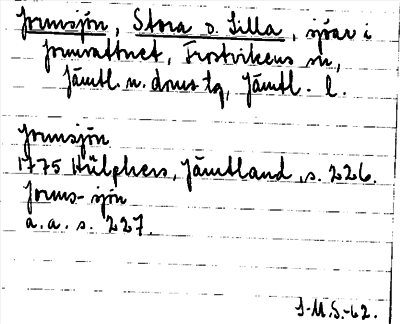 Jormsjön, Stora o. Lilla, sjöar i
Jormvattnet, Frostvikens sn,
Jämtl. n. doms tg, Jämtl. l.
Jormsjön
1775 Hülphers, Jämtland, s. 226.
Jorms-sjön
a. a. s. 227.
S-M.S.-62.